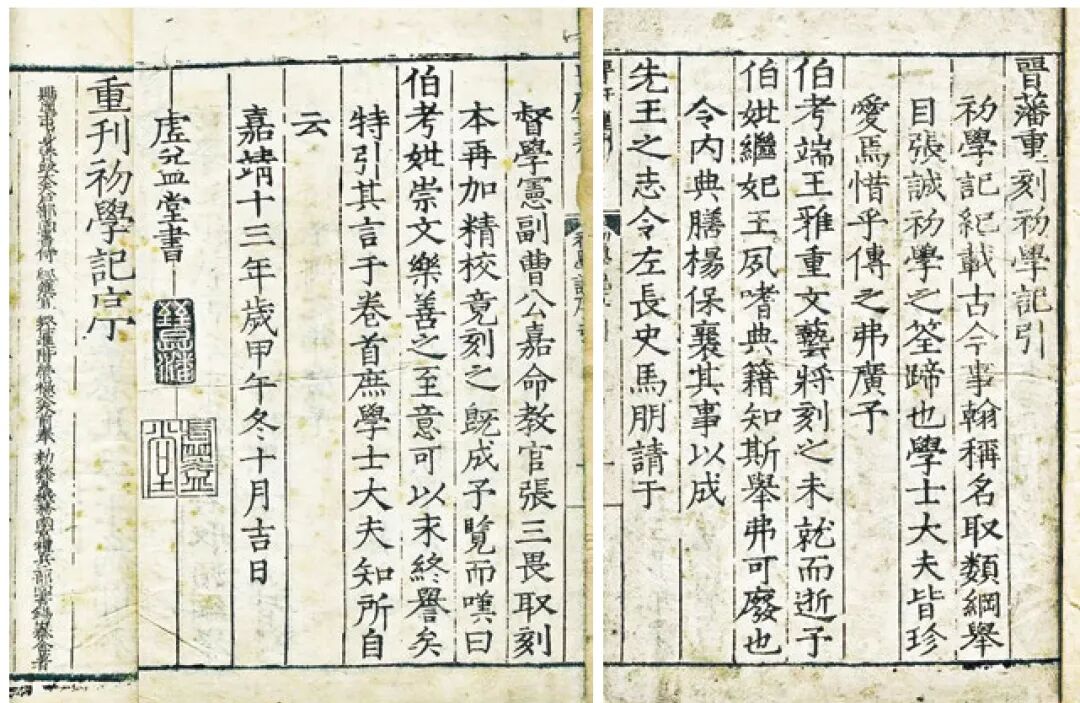 晉藩重刻初學記引
初學記紀載古今事翰稱名取類綱舉
目張誠初學之筌蹄也學士大夫皆珍
愛焉惜乎傳之弗廣予
伯考端王雅重文藝將刻之未就而逝予
伯妣繼妃王夙嗜典籍知斯舉弗可廢也
令內典膳楊保襄其事以成
先王之志令左長史馬朋請于
督學憲副曹公嘉命教官張三畏取刻
本再加精校竟刻之既成予覽而嘆曰
伯考妣崇文樂善之至意可以求終譽矣
特引其言于卷首庶學士大夫知所自
云
嘉靖十三年歲甲午冬十月吉日
虛益堂書
重刊初學記序